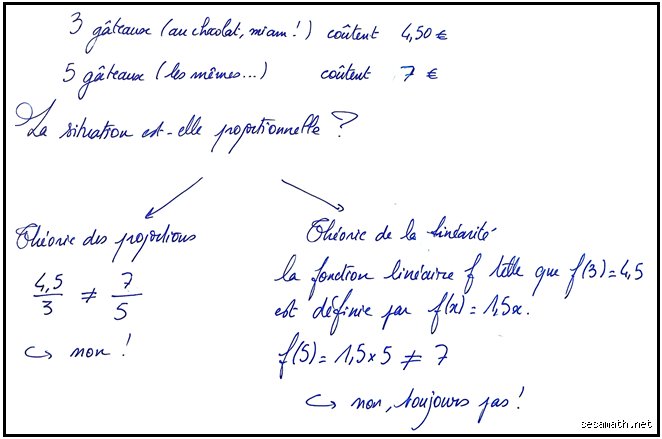 3 gâteaux (au chocolat, miam !) coûtent 4,50 €
5 gâteaux (les mêmes...) coûtent 7 €
La situation est-elle proportionnelle ?
Théorie des proportions
4,5/3 ≠ 7/5
↪ non !
Théorie de la linéarité
la fonction linéaire f telle que f(3)=4,5
est définie par f(x)=1,5x.
f(5)=1,5×5 ≠ 7
↪ non, toujours pas !
sesamath.net